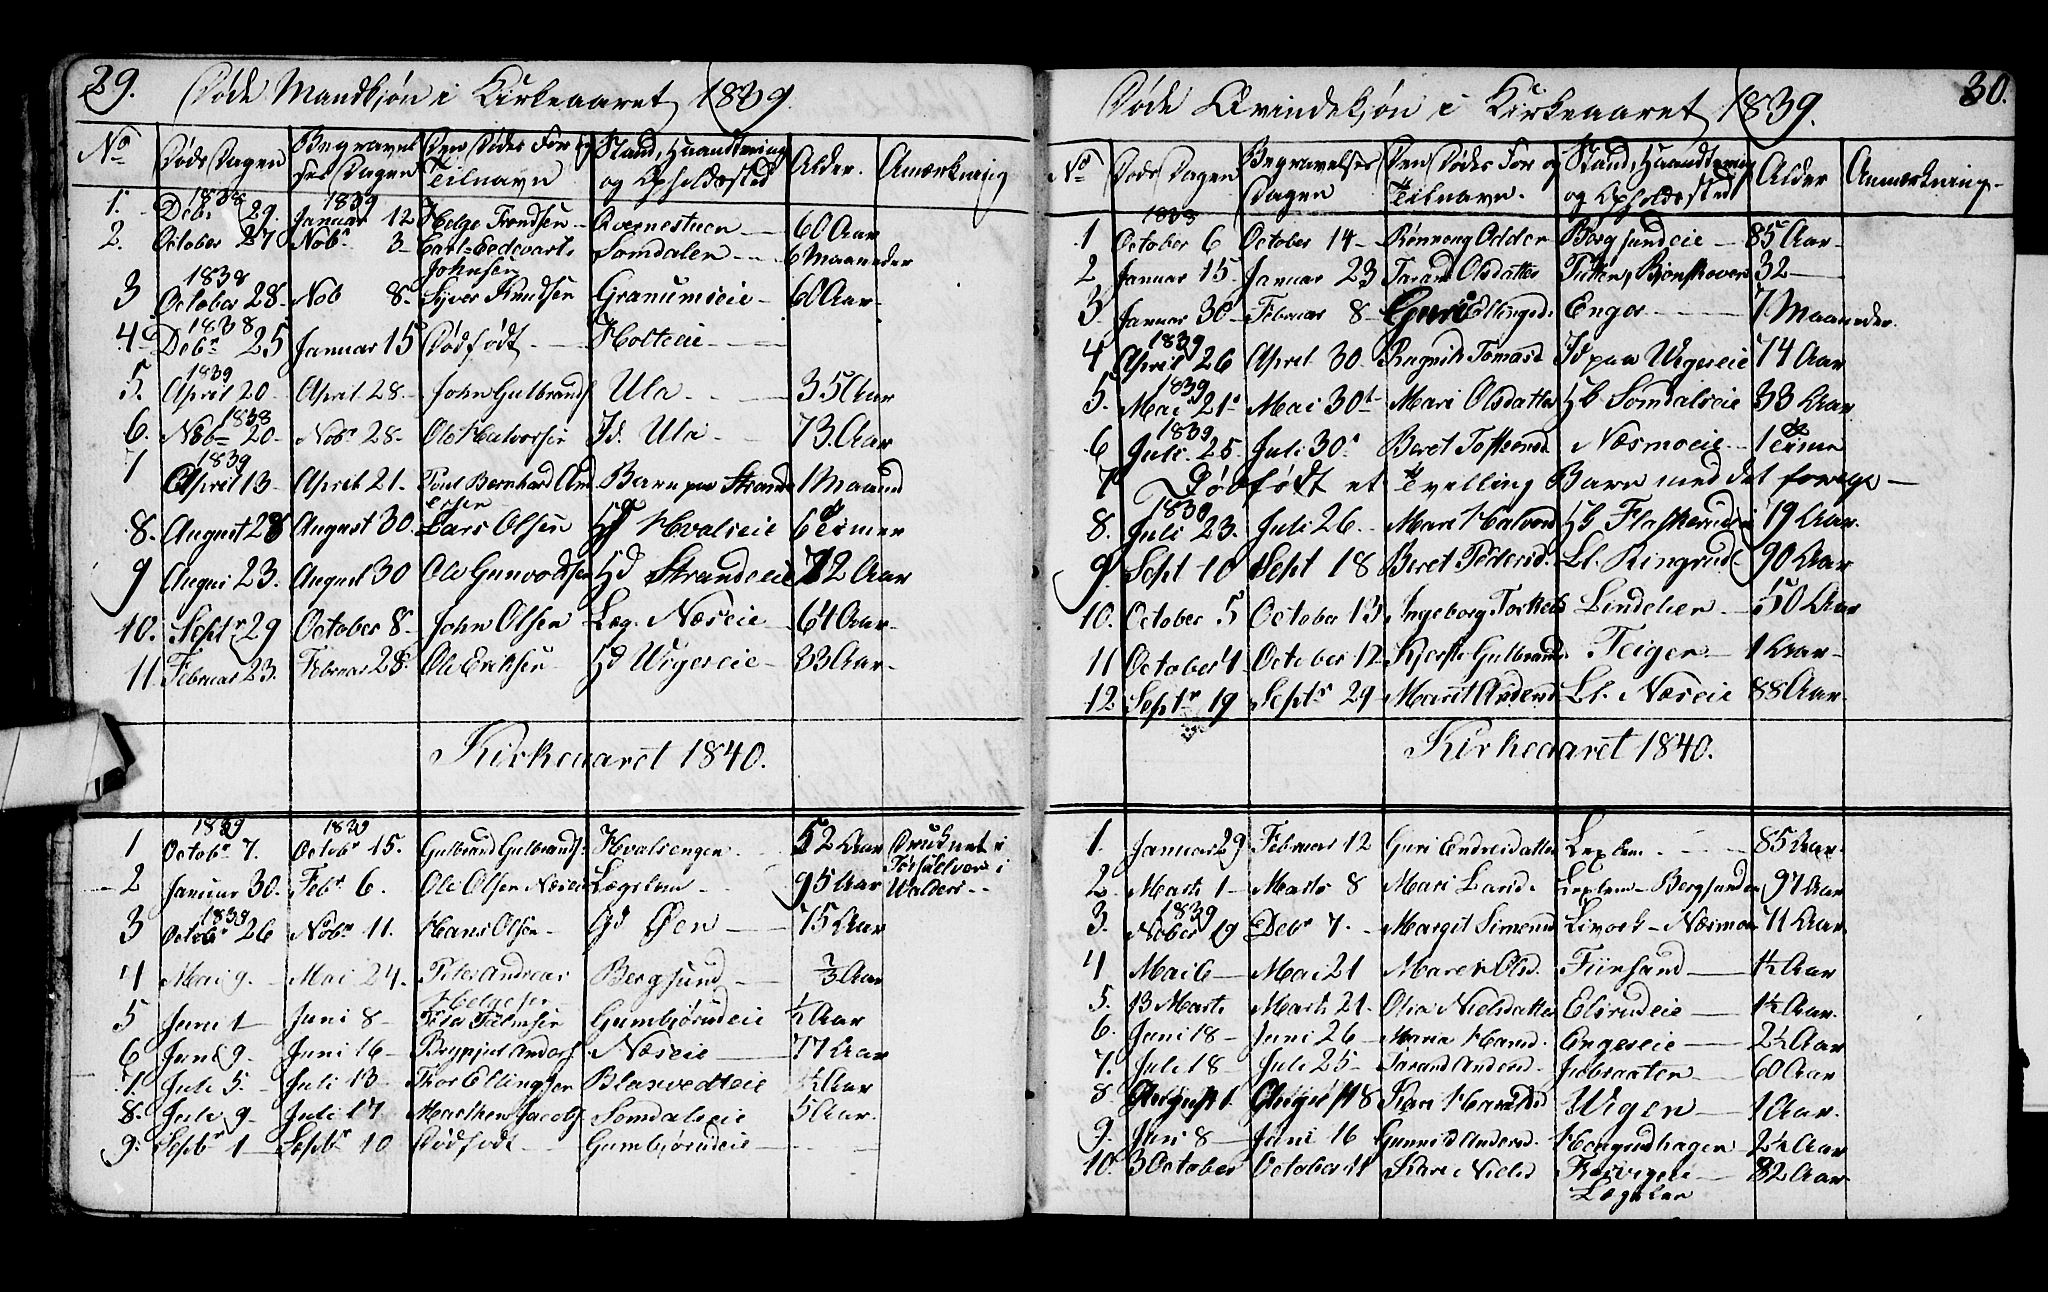 29. Døde Mandkjøn i Kirkeaaret 1839.
No Døds Dagen Begravelses Dagen Den Dødes For og Teilnavn Stand, Haandtering og Opholdssted Alder. Anmærkning
1. 1838 Debr 29. 1839 Januar 12 Helge Trondsen Qvernesteen 60 Aar
2. October 27 Nobr 3 Carl Eedevart Johnsen Somdalen 6 Maaneder
3 1838 October 28 Nob 8 Syver Knudsen Granumseie 60 Aar
4 1838 Debr 25 Januar 15 Dødfødt Holteeie
5. 1839 April 20 April 28 John Gulbrands Ula 35 Aar
6. 1838 Nobr 20 Nobr 28 Ole Halvorsen Id. Ula 73 Aar
7 1839 April 13 April 21 Poul Bernhard And Barn paa Strande 1 Maaned
8. August 28 August 30 Lars Olsen Hvalseie 6 Teimer
9 Augus 23. August 30 Ole Gunvoldsen Strandeeie 72 Aar
10. Septr 29 October 8 John Olsen Læg. Næseie 64 Aar
11. Februar 23. Februar 28 Ole Eriksen Wigerseie 33 Aar
Kirkeaaret 1840.
1 1839 Octobr 7. 1839 Octobr 15. Gulbrand Gulbrands Hvalsengen 52 Aar Druknet i
2 Januar 30. Febr 6. Ole Olsen Næseie Lægslem 95 Aar Walders
3 1839 Octobr 26 Nobr 11. Hans Olsen Gd Øen 75 Aar
4 Mai 9 Mai 24. Peter Andreas Helgesen Bergsund 2/3 Aar
5 Juni 1 Juni 8 Gumbjørudeie ½ Aar
6 Juni 9 Juni 16 Næseie 77 Aar
7. Juli 5. Juli 13 Thor Ellingsen Blaxvedteie ½ Aar
8. Juli 9 Juli 17 Mathen Jacobs Somdalseie 5 Aar
9. Septbr 1 Septbr 10 Dødfødt Gumbjørudeie
30. Døde Qvindekjøn i Kirkeaaret 1839.
No Døds Dagen Begravelses Dagen Den Dødes For og Teilnavn. Stand, Haandtering og Opholdssted Alder Anmerkning
1 1838 October 6 October 14 Rønnoug Odder Bergsundeie 85 Aar
2 Januar 15 Januar 23 Taran Olsdatter 32
3 Januar 30 Februar 8 Guri Ellingsd. Enger 7 Maaneder
4 1839 April 26 April 30 Ragnild Tomasd Id paa Wigerseie 74 Aar
5. 1839 Mai 21 Mai 30 Mari Olsdatter Somdalseie 33 Aar
6 1839 Juli 25 Juli 30 Beret Toftensd Næsmoeie 1 Teime
7 Dødfødt et Tvelling Barn med det forrige
8. 1839 Juli 23. Juli 26 Mari Halvorsd Flaskerud 19 Aar
9 Sept 10 Sept 18 Beret Pedersd. Ll. Ringrud 90 Aar
10. October 5 October 13 Ingeborg Torkels Lindelien 50 Aar
11 October 4 October 12 Kjersti Gulbrands Teigen 1 Aar
12 Septr 19 Septr 29 Marit Andersd Ll. Næseie 88 Aar
Kirkeaaret 1840.
1. Januar 29 Februar 12 Guri Endresdatter Leglem 85 Aar
2. Marts 1 Marts 8 Mari Larsd. Leglem Bergsundeie 97 Aar
3. 1839 Nober 19 Debr 7. Margit Simensd Næsmoe 71 Aar
4 Mai 6 Mai 21 Maren Olsd. Fiinsand ½ Aar
5. 13 Marts Marts 21 Olia Nielsdatter Elsrudeie 1½ Aar
6. Juni 18 Juni 26 Maria Hansd. Engereie 2½ Aar
7. Juli 18 Juli 25 Tarand Andersd. Julsrasten 60 Aar
8 August 1 August 18 Kari Haralds Wigen 1 Aar
9. Juni 8 Juni 16 Gunnild Andersd. Hougrudhagen 2½ Aar
10. 3 October October 11 Kari Nielsd Lægslem 82 Aar